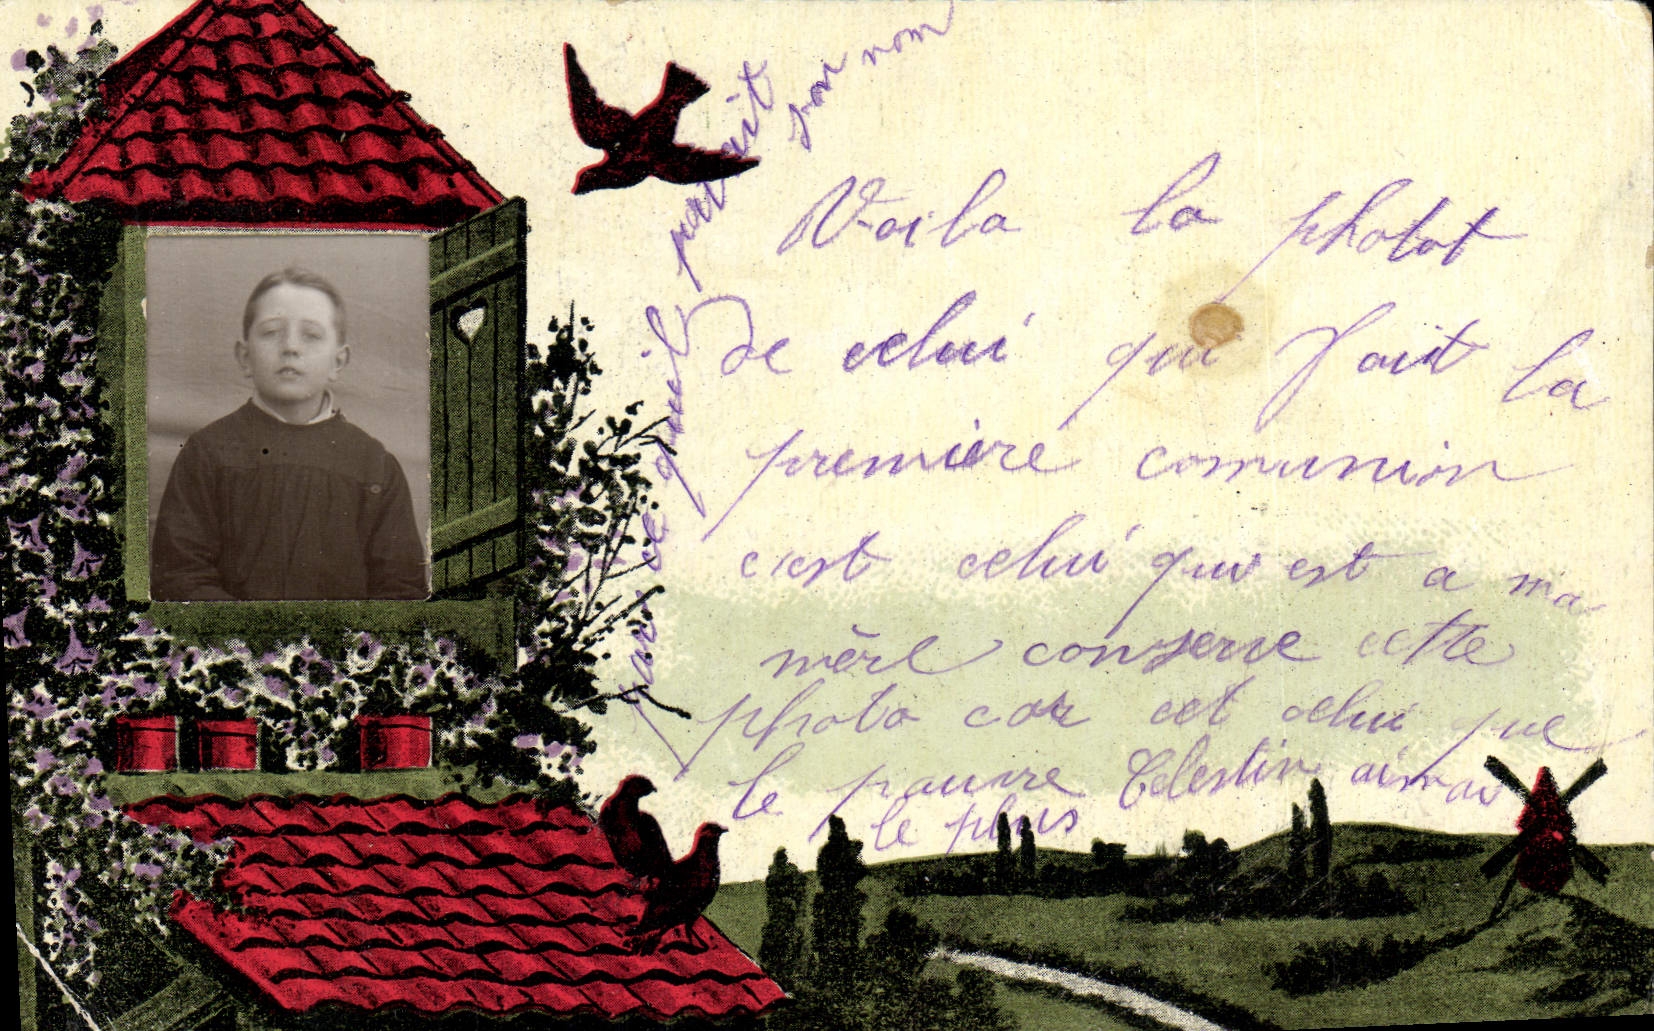 Voila la photot
de celui qui fait la
première comunion
c'est celui qui est a ma
mère conserve cette
photo car cet celui que
le pauvre Célestin aimai
le plus
parce quil portait
son nom